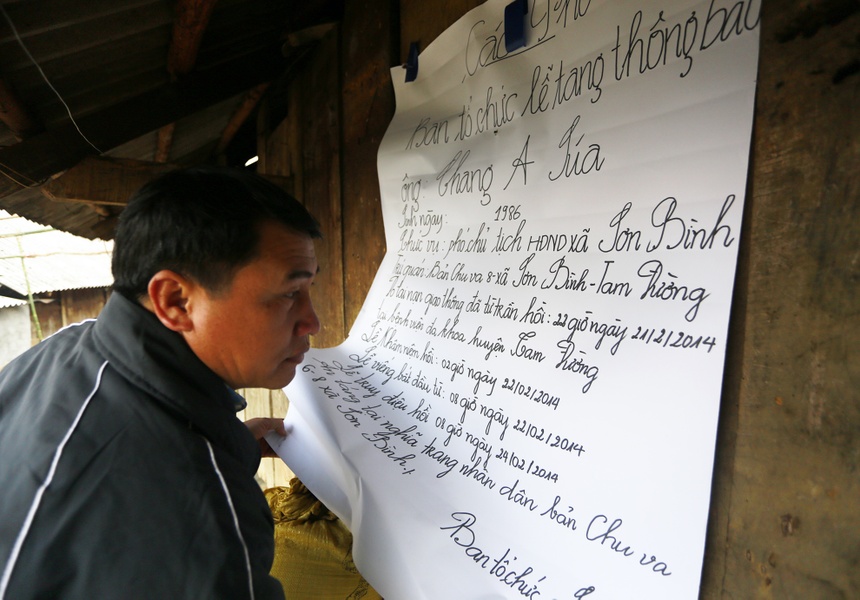 Cáo Phó
Ban tổ chức lễ tang thông báo
Ông: Chang A Túa
Sinh ngày: 1986
Chức vụ: phó chủ tịch HĐND xã Sơn Bình
Trú quán Bản Chu va 8-xã Sơn Bình-Tam Đường
Do tai nạn giao thông đã từ trần hồi: 22 giờ ngày 21/2/2014
Tại bệnh viện đa khoa huyện Tam Đường
Lễ Khâm niệm hồi: 02 giờ ngày 22/02/2014
Lễ viếng bắt đầu từ: 08 giờ ngày 22/02/2014
Lễ truy điệu hồi 08 giờ ngày 24/02/2014
An táng tại nghĩa trang nhân dân bản Chu va
6-8 xã Sơn Bình
Ban tổ chức